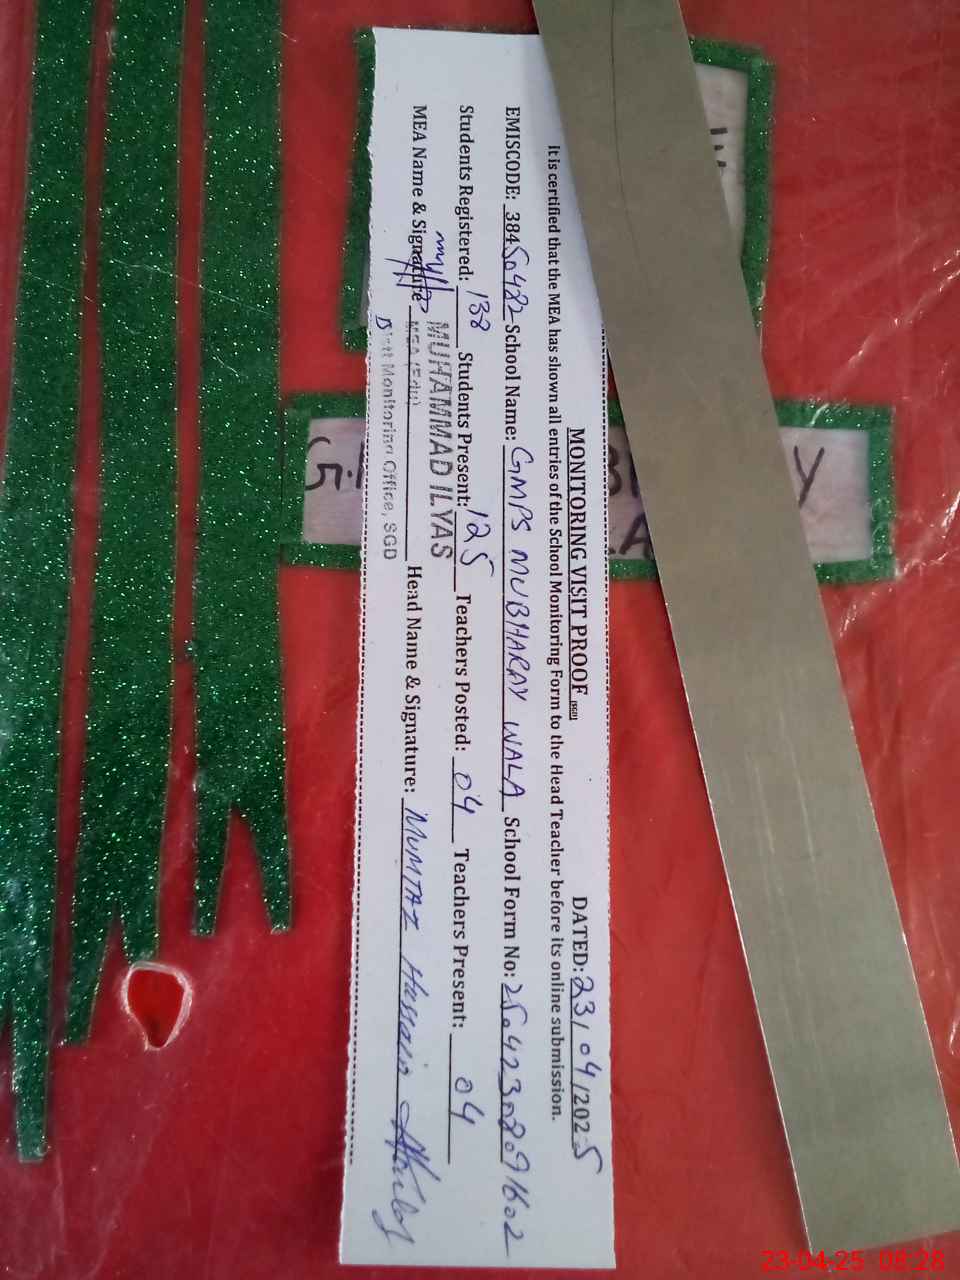 MONITORING VISIT PROOF (SGD) DATED: 23/04/2025
It is certified that the MEA has shown all entries of the School Monitoring Form to the Head Teacher before its online submission.
EMISCODE: 38450422 School Name: GMPS MUBHARAY WALA School Form No: 25042308091602
Students Registered: 138 Students Present: 125 Teachers Posted: 04 Teachers Present: 04
MEA Name & Signature Head Name & Signature: MUMTAZ Hussain
MUHAMMAD ILYAS
MEA (Edu)
Distt Monitoring Office, SGD
23-04-25 08:28